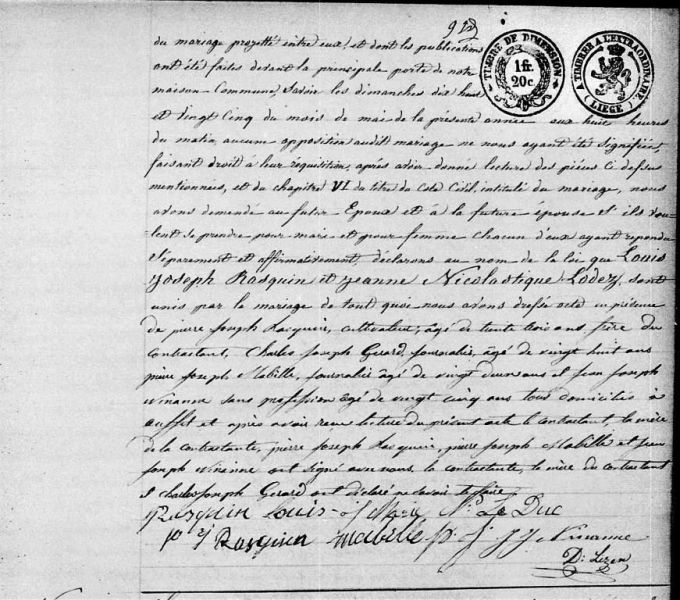 du mariage projetté entre eux, et dont les publications
ont été faites devant la principale porte de notre
maison Commune, Savoir les dimanches dix huit
et vingt Cinq du mois de mai de la presente année aux huit heures
du matin, aucune opposition audit mariage ne nous ayant été Signifiée,
faisant droit à leur réquisition, après avoir donné lecture des pièces Ci dessus
mentionnées, et du chapitre VI du titre du Code Civil intitulé du mariage, nous
avons demandé au futur Epoux et à la future épouse S'ils veu-
lent se prendre pour mari et pour femme chacun d'eux ayant repondu
Séparement et affirmativement, déclarons au nom de la loi que Louis
Joseph Rasquin et Jeanne Nicolastique Lodez, sont
unis par le mariage de tout quoi nous avons dressé acte en présence
de pierre Joseph Rasquin, cultivateur, agé de trente trois ans frère du
Contractant, Charles Joseph Gerard, Journalier, âgé de vingt huit ans
pierre Joseph Mabille, Journalier âgé de vingt deux ans et Jean Joseph
Ninanne sans profession âgé de vingt cinq ans tous domiciliés à
Ouffet et après avoir reçu lecture du présent acte le contractant, la mère
de la contractante, pierre Joseph Rasquin, pierre Joseph Mabille et jean
Joseph Ninanne ont Signé avec nous, la contractante, la mère du contractant
et Charles Joseph Gerard ont déclaré ne savoir le faire
TIMBRE DE DIMENSION
1 fr
20c
A TIMBRER A L'EXTRAORDINAIRE
(LIEGE)
Rasquin Louis J. Le Duc
p j Rasquin mabille p. j. J J Ninanne